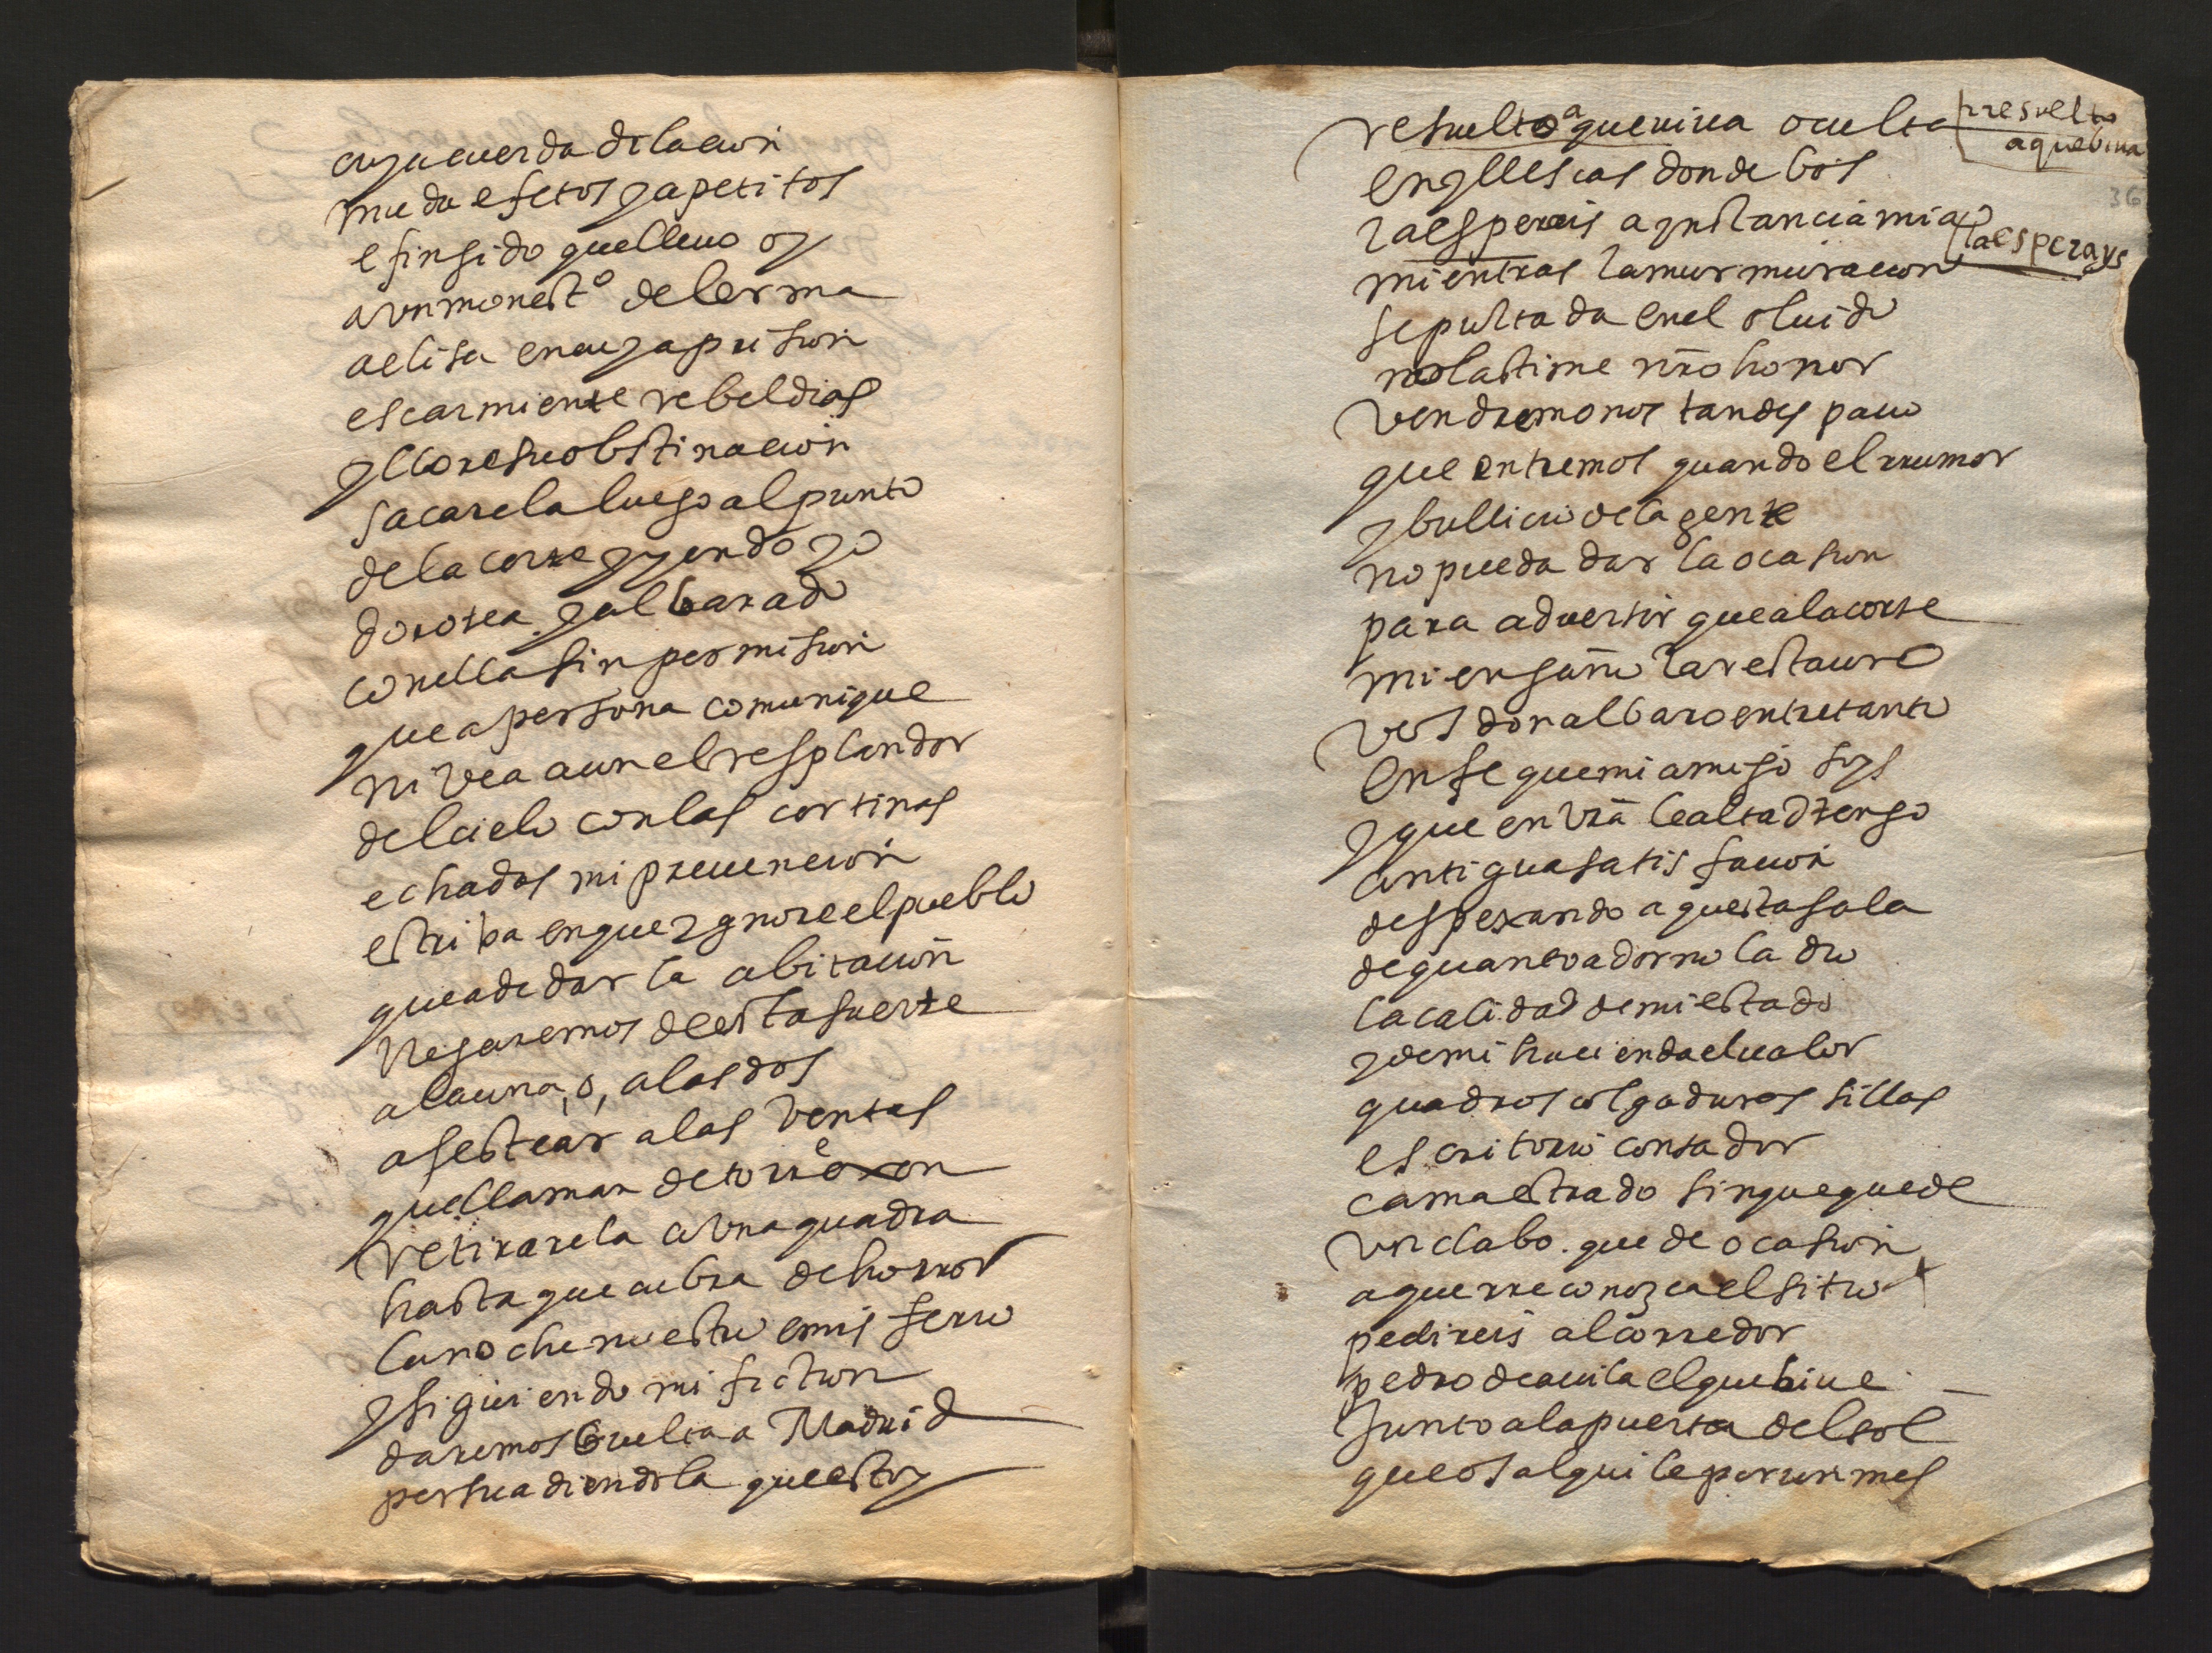 cuya cuerda dilacion
muda efetos y apetitos
e fingido que lleuo oy
a vn monestº de lerma
a elisa en cuya prision
escarmiente rebeldias
y llore su obstinacion
sacarela luego al punto
de la corte y yendo yo
dorotea y albarado
con ella sin permision
que a persona comunique
ni vea aun el resplandor
del cielo con las cortinas
echadas mi preuencion
estriba en que ygnore el pueblo
que a de dar la abitacion
llegaremos de esta suerte
a la una, o, a las dos
a sestear a las ventas
que llaman de torrexon
retirarela a vna quadra
hasta que cubra de horror
la noche nuestro emisferio
y siguiendo mi fiction
daremos buelta a Madrid
persuadiendola que estoy
resuelto a que viua oculta
rresuelto
a que biua
36
en yllescas donde bos
la esperais a ynstancia mia
la esperays
mientras la murmuracion
sepultada en el oluido
no lastime nr̄o honor
vendremonos tan despacio
que entremos quando el rrumor
y bullicio de la gente
no pueda dar la ocasion
para aduertir que a la corte
mi engaño la restauro
vos don albaro entretanto
en fe que mi amigo soys
y que en vr̄a lealtad tengo
antigua satisfacion
despexando aquesta sala
de quanto adorno la dio
la calidad de mi estado
y de mi hacienda el ualor
quadros colgaduras sillas
escritorio contador
cama estrado sin que quede
vn clabo que de ocasion
a que rreconozca el sitio
pedireis al corredor
pedro de auila el que biue
junto a la puerta del sol
que os alquile por un mes